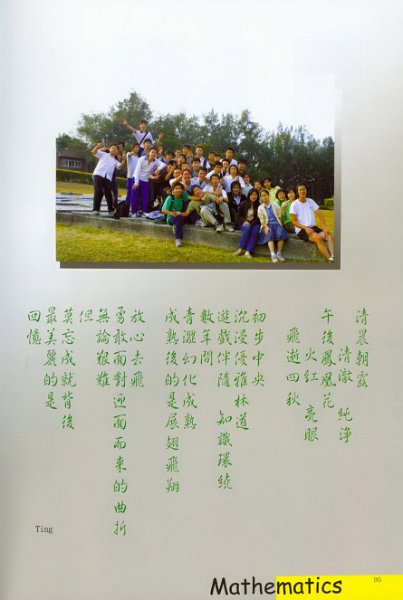 清晨朝露
清澈 純淨
午後鳳凰花
火紅 亮眼
飛逝四秋
初步中央
沉浸優雅林道
遊戲伴隨 知識環繞
數年間
青澀幻化成熟
成熟後的是展翅飛翔
放心去飛
勇敢面對迎面而來的曲折
無論艱難
但
莫忘成就背後
最美麗的是
回憶
Ting
Mathematics
95